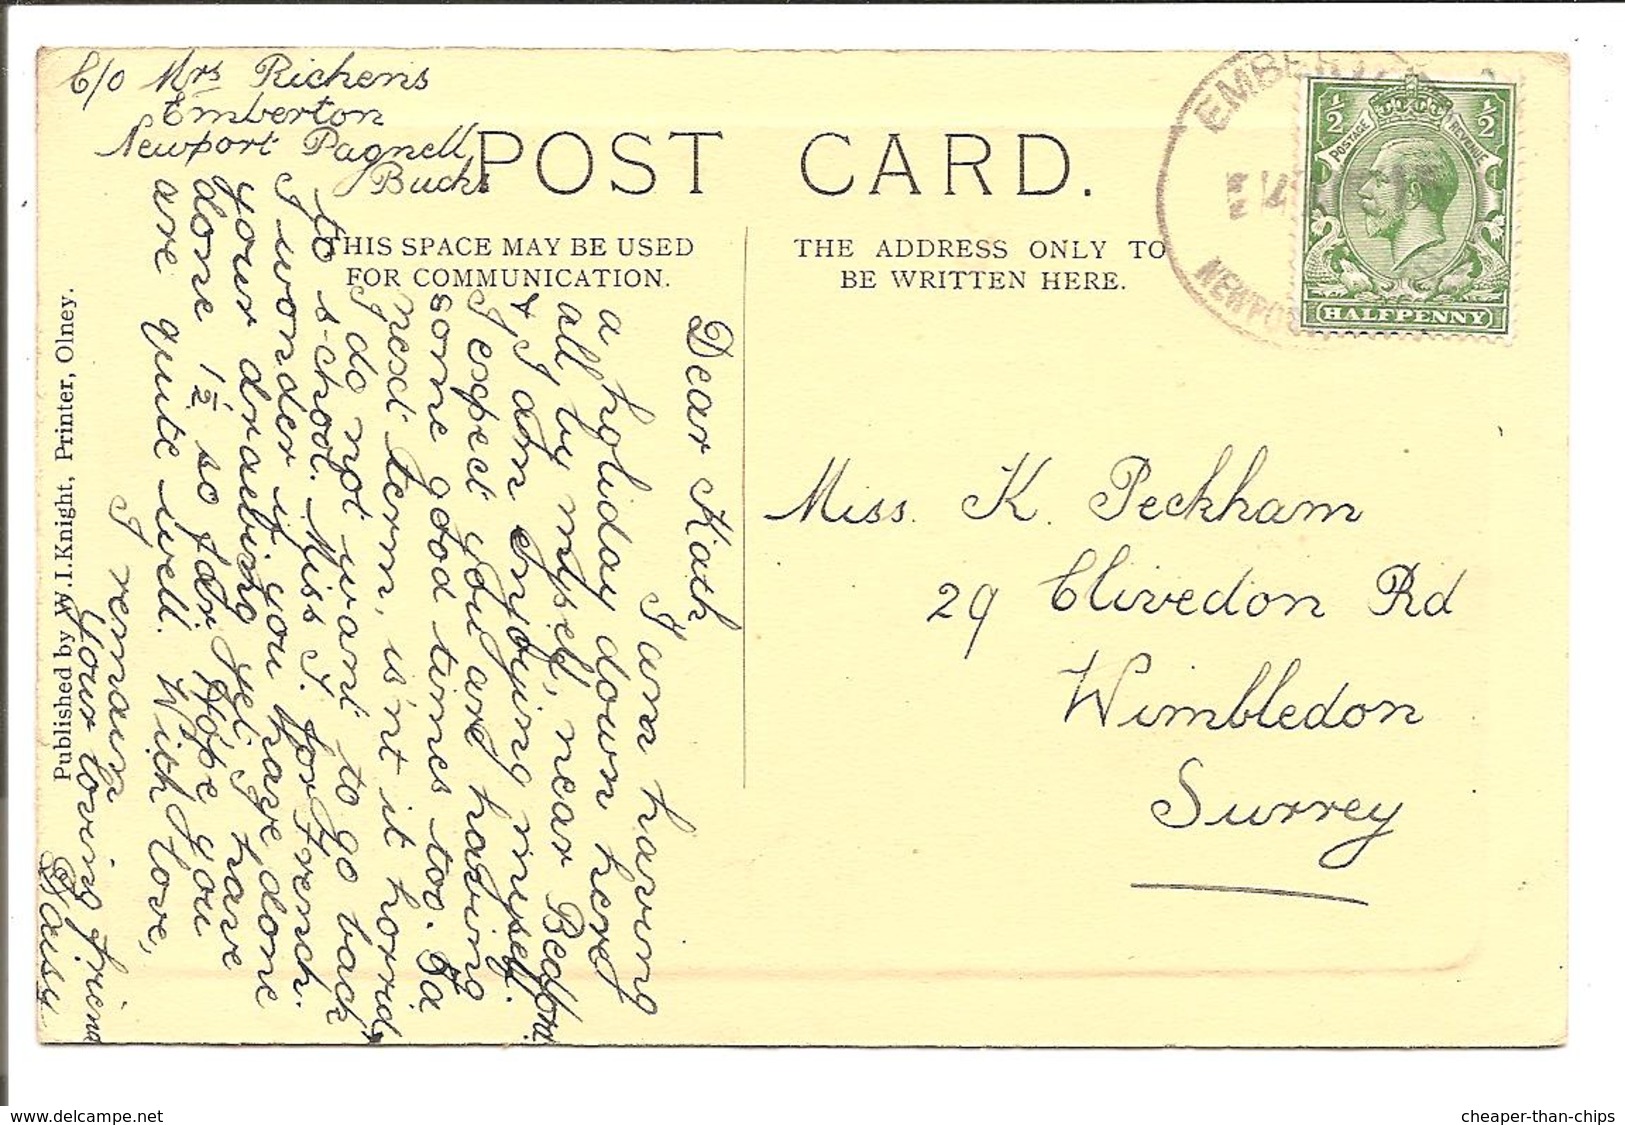 C/o Mrs Richens
Emberton
Newport Pagnell
Bucks
POST CARD.
THIS SPACE MAY BE USED
FOR COMMUNICATION.
THE ADDRESS ONLY TO
BE WRITTEN HERE.
Dear Kath,
I am having
a holiday down here
all by myself, near Bedford
& I am enjoying myself.
I expect you are having
some good times too.
next term, is'nt it horrid,
I do not want to go back
to school. Miss J. for French.
I wonder if you have done
your drawing yet. I have
done 1½ so far. Hope you
are quite well. With love,
I remain
Your loving friend
Daisy
Miss. K. Peckham
29 Clivedon Rd
Wimbledon
Surrey
EMBERTO
NEWPO
POSTAGE
REVENUE
½
½
HALFPENNY
Published by W.I.Knight, Printer, Olney.
www.delcampe.net
cheaper-than-chips